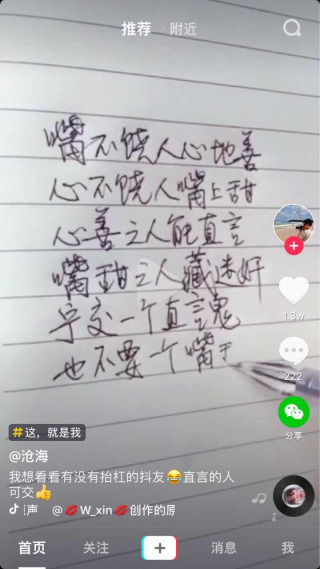 推荐 附近
嘴不饶人心地善
心不饶人嘴上甜
心善之人能直言
嘴甜之人藏迷奸
宁交一个直言鬼
也不要一个嘴
1.3w
222
分享
#这,就是我
@沧海
我想看看有没有抬杠的抖友😂直言的人
可交👍
声 @💋W_xin💋创作的原
首页 关注 消息 我